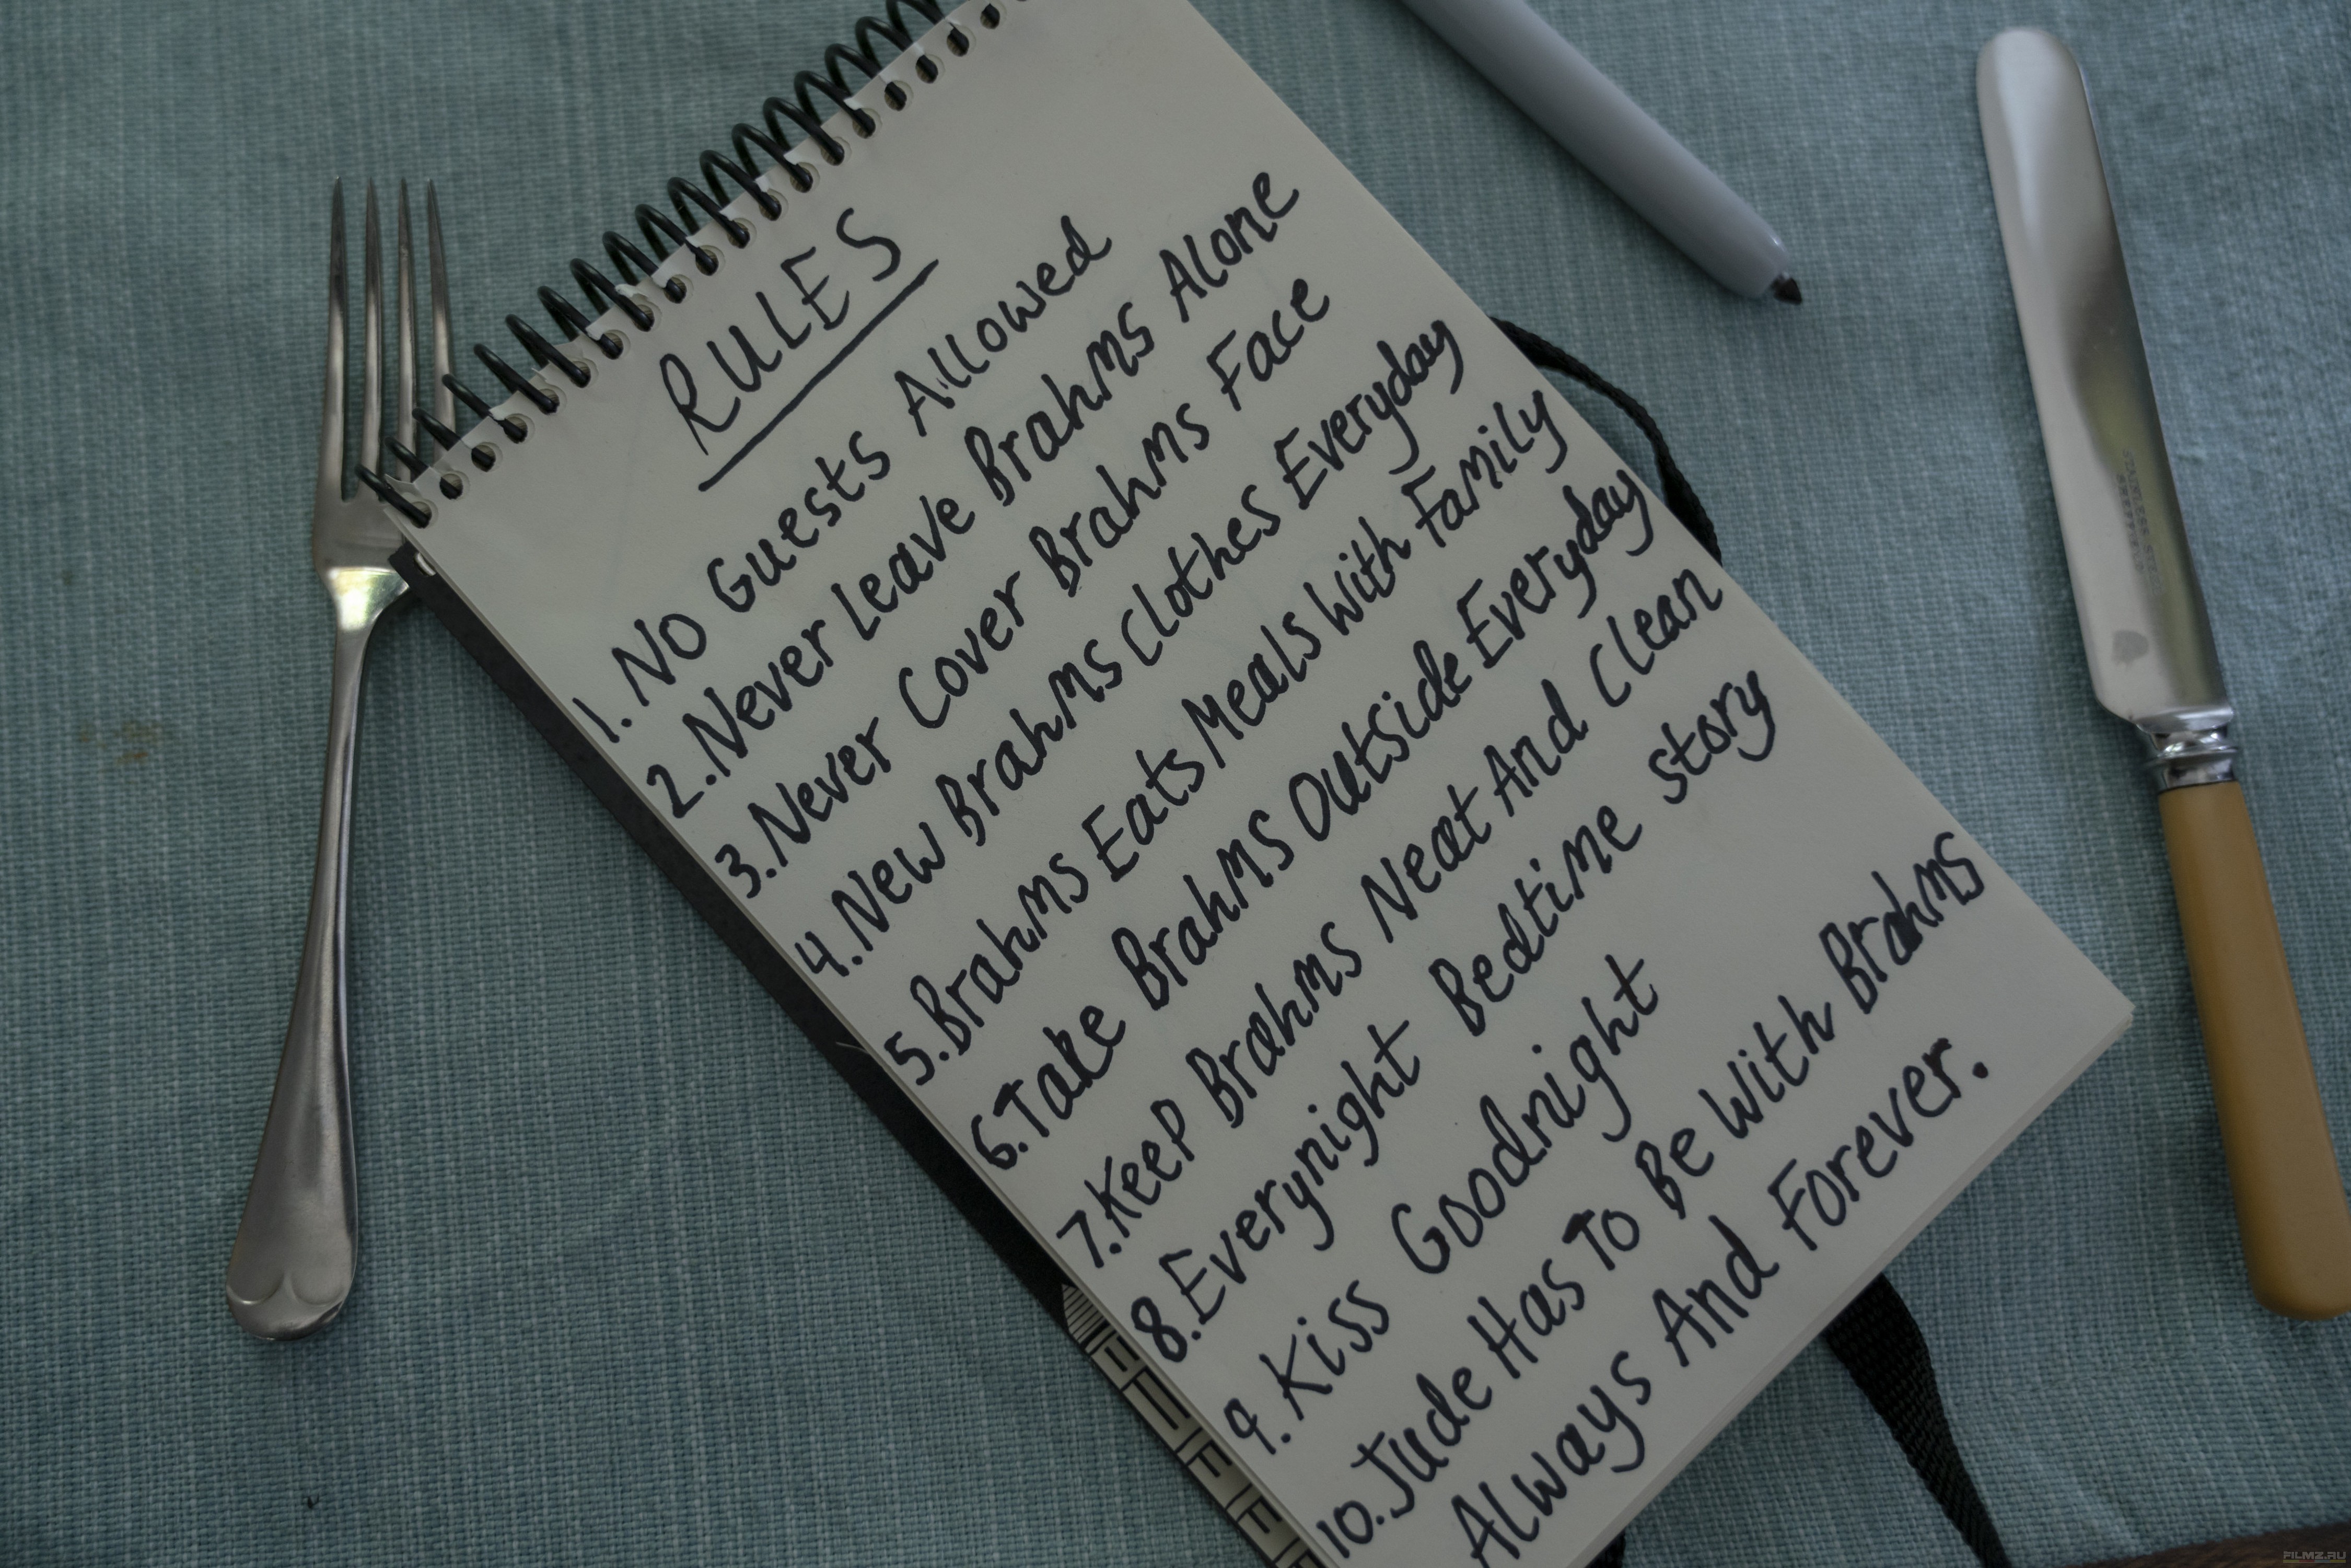 RULES
1. No Guests Allowed
2. Never Leave Brahms Alone
3. Never Cover Brahms Face
4. New Brahms Clothes Everyday
5. Brahms Eats Meals With Family
6. Take Brahms Outside Everyday
7. Keep Brahms Neat And Clean
8. Everynight Bedtime story
9. Kiss Goodnight
10. Jude Has To Be With Brahms
Always And Forever.
FILMZ.RU